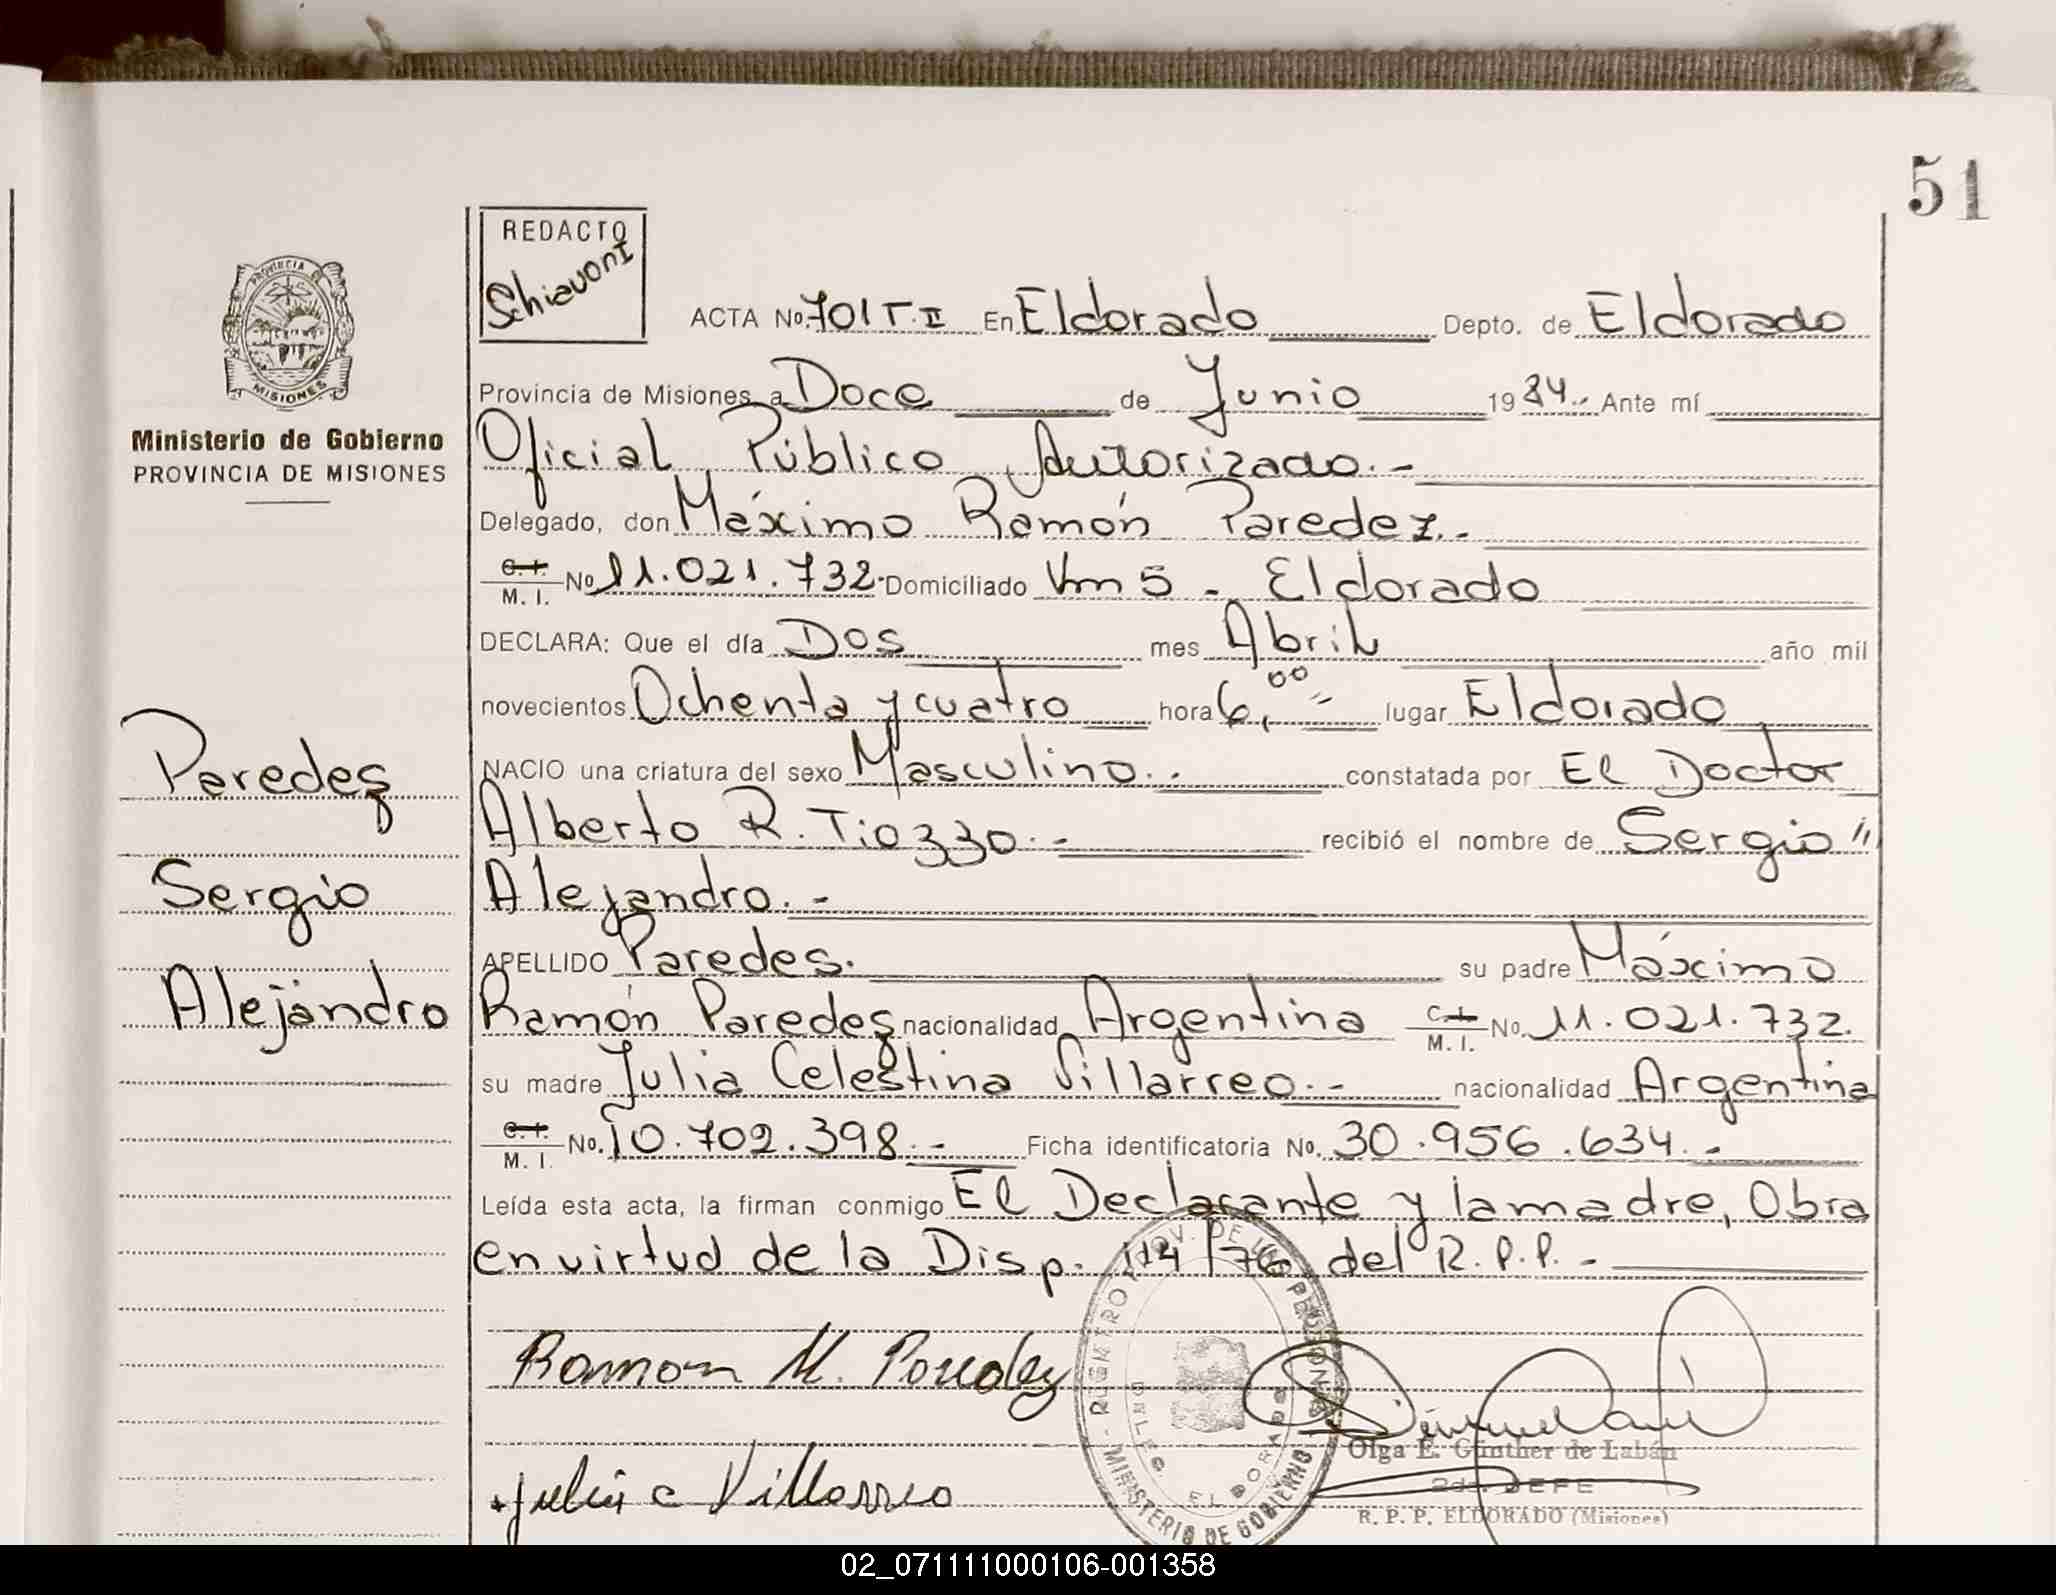 51
REDACTO
Schiavoni
PROVINCIA
MISIONES
Ministerio de Gobierno
PROVINCIA DE MISIONES
ACTA No. 701 T. II En Eldorado Depto. de Eldorado
Provincia de Misiones a Doce de Junio 1984.- Ante mí
Oficial Público Autorizado.-
Delegado, don Máximo Ramón Paredez.-
C. I. M. I. No 11.021.732. Domiciliado Km 5 - Eldorado
DECLARA: Que el día Dos mes Abril año mil
novecientos Ochenta y cuatro hora 6,00 lugar Eldorado
NACIO una criatura del sexo Masculino.- constatada por El Doctor
Alberto R. Tiozzo.- recibió el nombre de Sergio "
Alejandro.-
APELLIDO Paredes. su padre Máximo
Ramón Paredes nacionalidad Argentina C. I. M. I. No. 11.021.732.
su madre Julia Celestina Villarreo.- nacionalidad Argentina
C. I. M. I. No. 10.702.398.- Ficha identificatoria No. 30.956.634.-
Leída esta acta, la firman conmigo El Declarante y la madre, Obra
en virtud de la Disp. 114/76 del R.P.P.-
Paredes
Sergio
Alejandro
Ramon M. Paredez
Julia c Villarreo
REGISTRO PROV. DE LAS PERSONAS - MINISTERIO DE GOBIERNO
DELEG. ELDORADO
Olga E. Günther de Labán
2da. JEFE
R. P. P. ELDORADO (Misiones)
02_071111000106-001358